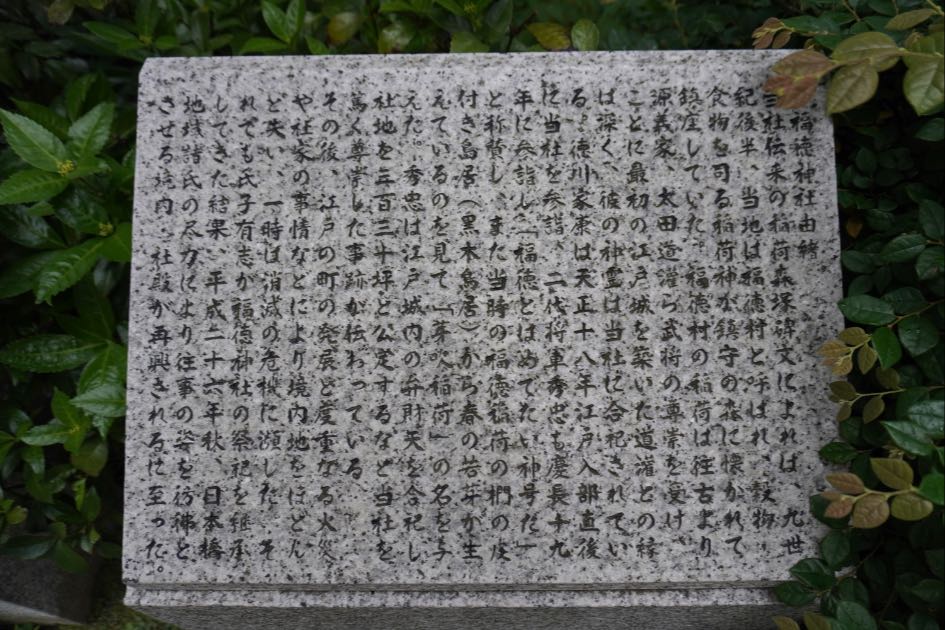 福徳神社由緒
当社伝来の稲荷森塚碑文によれば、九世
紀後半、当地は福徳村と呼ばれ、穀物・
食物を司る稲荷神が鎮守の森に懐かれて
鎮座していた。福徳村の稲荷は往古より
源義家、太田道灌ら武将の尊崇を受け、
ことに最初の江戸城を築いた道灌との縁
は深く、彼の神霊は当社に合祀されてい
る。徳川家康は天正十八年江戸入部直後
に当社を参詣、二代将軍秀忠も慶長十九
年に参詣し「福徳とはめでたい神号だ」
と称賛し、また当時の福徳稲荷の椚の皮
付き鳥居(黒木鳥居)から春の若芽が生
えているのを見て「芽吹稲荷」の名を与
えた。秀忠は江戸城内の弁財天を合祀し
社地を三百三十坪と公定するなど当社を
篤く尊崇した事跡が伝わっている。
その後、江戸の町の発展と度重なる火災
や社家の事情などにより境内地をほとん
ど失い、一時は消滅の危機に瀕した。そ
れでも氏子有志が福徳神社の祭祀を継承
してきた結果、平成二十六年秋、日本橋
地域諸氏の尽力により往事の姿を彷彿と
させる境内・社殿が再興されるに至った。